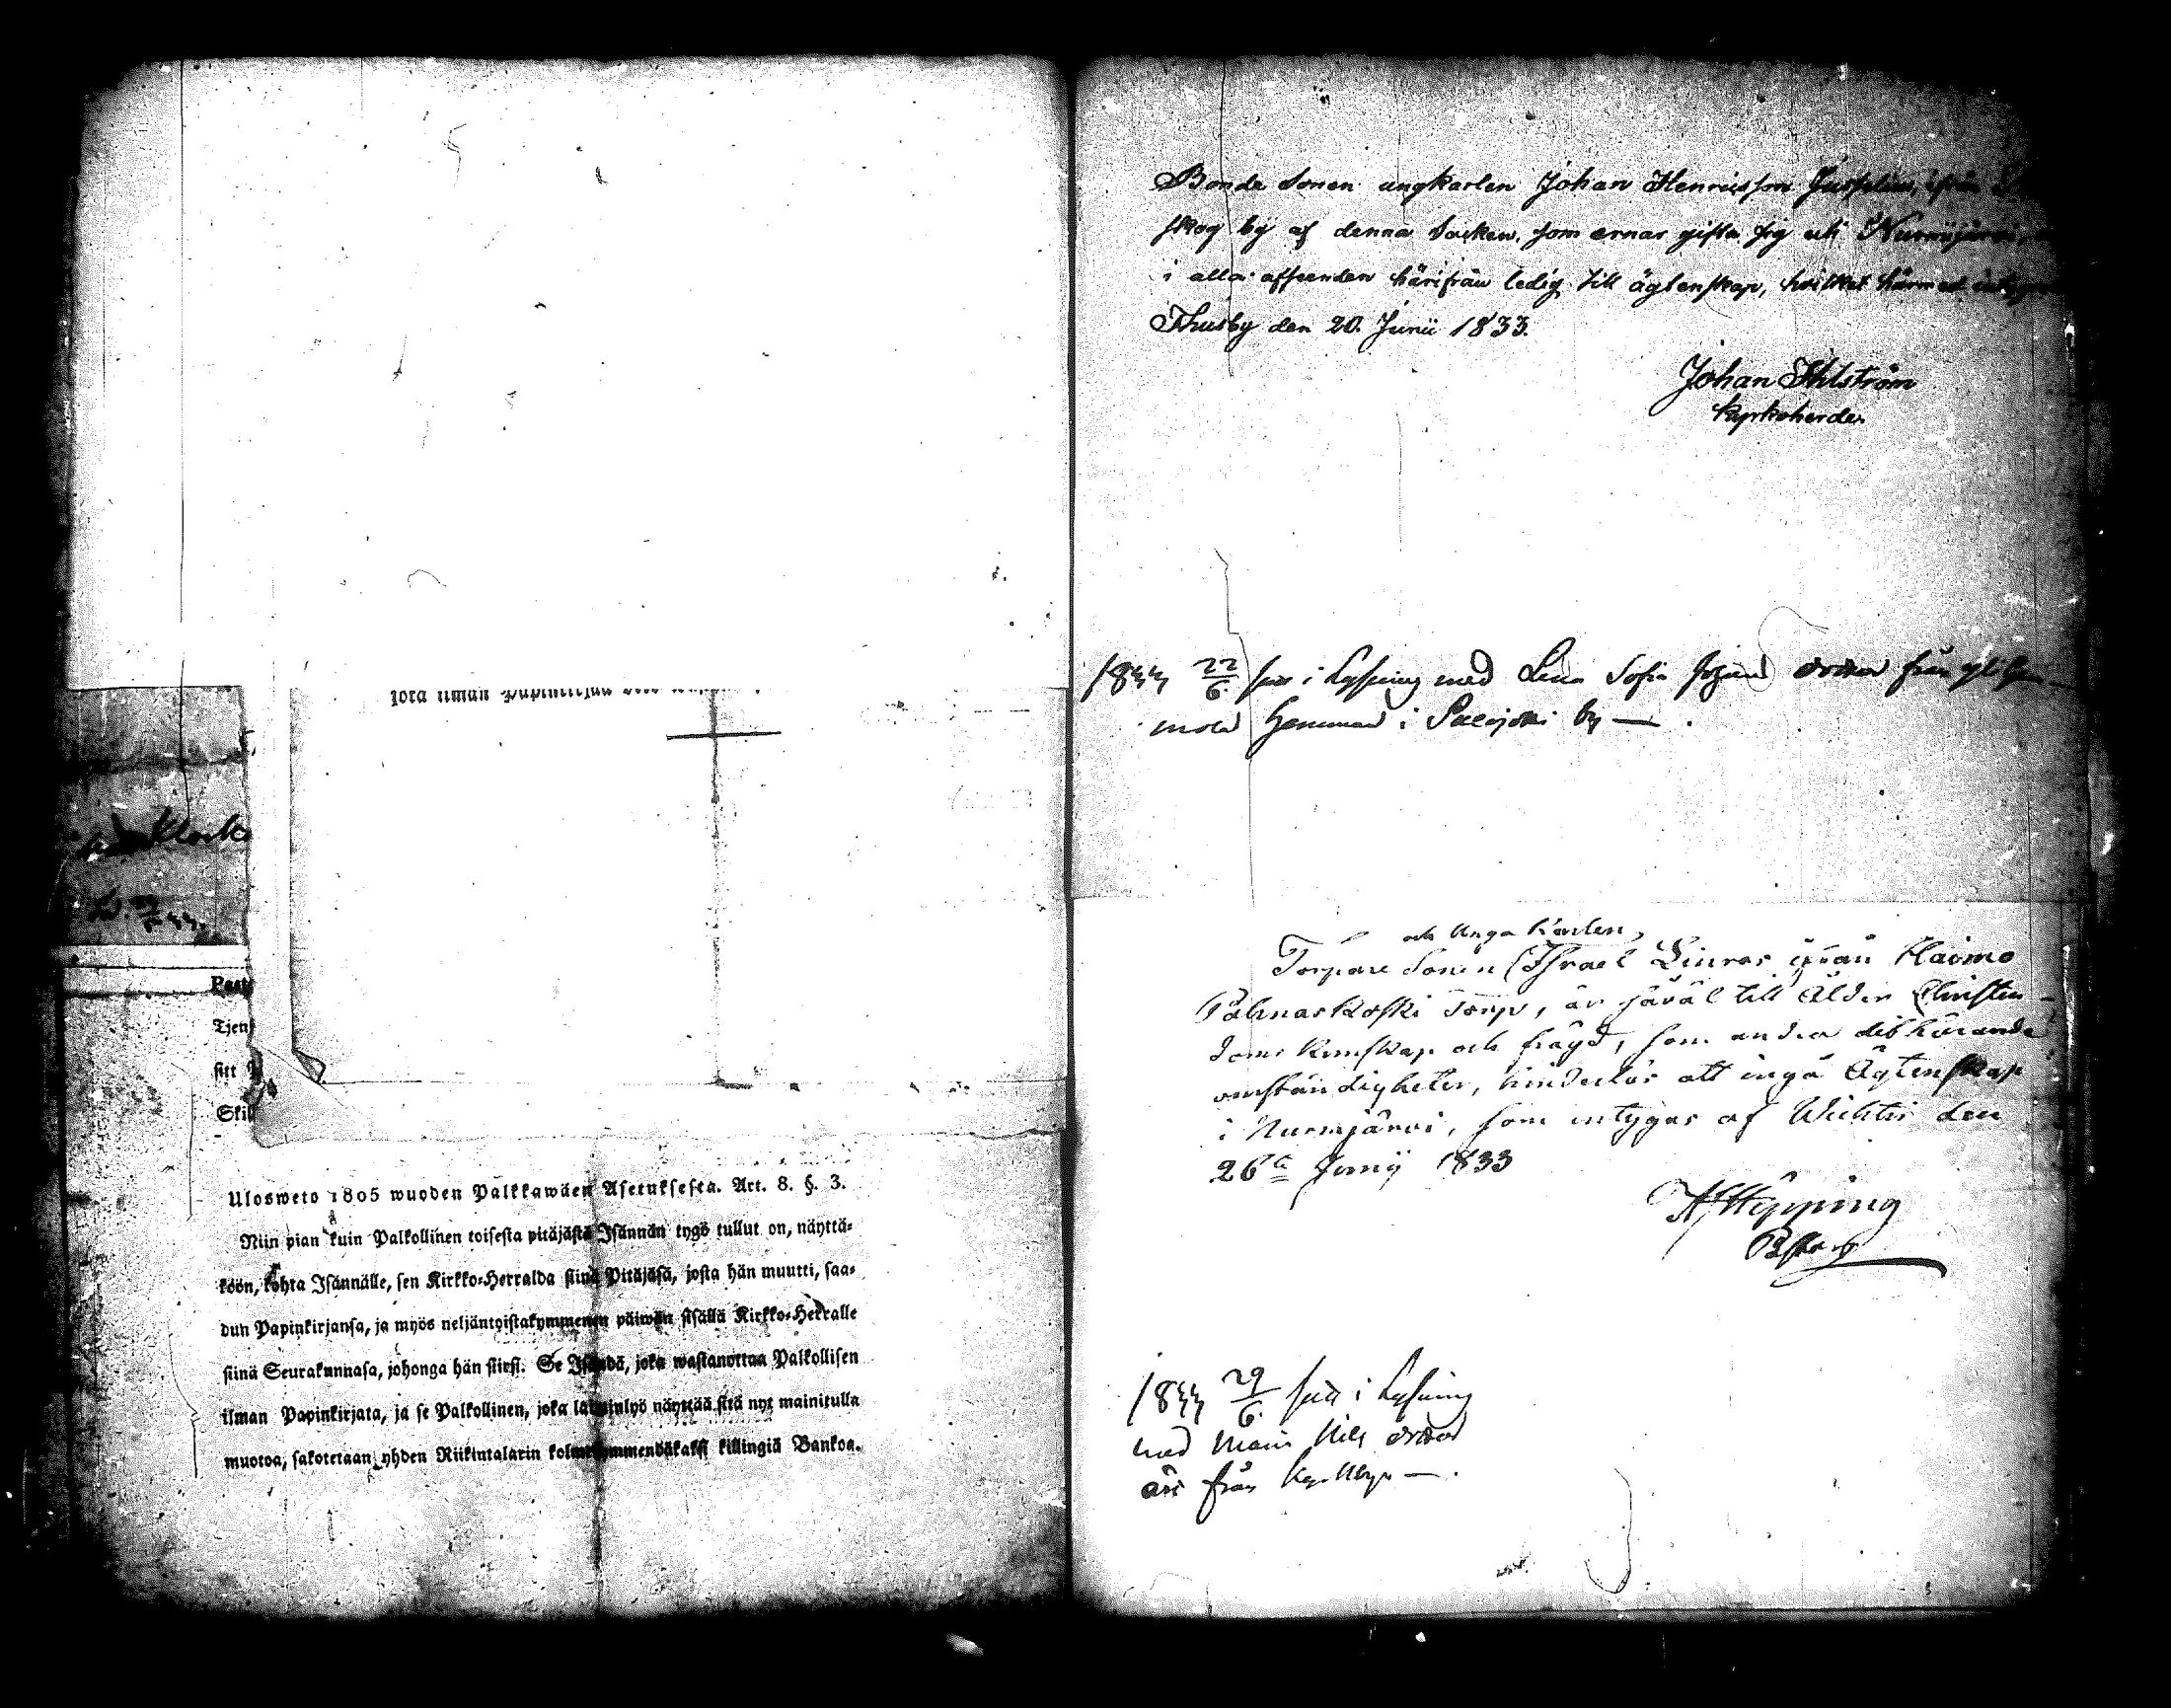 Klock
Past
Tjen
sitt
Skil
Ulosweto 1805 wuoden Palkkawäen Asetuksesta. Art. 8. §. 3.
Niin pian kuin Palkollinen toisesta pitäjästä Isännän tygö tullut on, näyttä-
köön, kohta Isännälle, sen Kirkko-Herralda siinä Pitäjäsä, josta hän muutti, saa-
dun Papinkirjansa, ja myös neljäntoistakymmenen päiwän sisällä Kirkko-Herralle
siinä Seurakunnasa, johonga hän siirsi. Se Isändä, joka wastanottaa Palkollisen
ilman Papinkirjata, ja se Palkollinen, joka laiminlyö näyttää sitä nyt mainitulla
muotoa, sakotetaan yhden Riikintalarin kolmekymmendäkaksi killingiä Bankoa.
Bonde Sonen ungkarlen Johan Henricsson ifrån
skog by af denna Socken, som ernar gifta sig uti Nurmijärvi,
i alla afseenden härifrån ledig till ägtenskap, hvilket härmed
Thusby den 20. Junii 1833.
Johan Ihlström
Kyrkoherde.
1833 22/6 i Lysning med Lena Sofia från
Hemman i Palojoki by —.
och Unga Karlen,
Torpare Sonen Israel Linros ifrån Haimo
Torp, är såväl till Ålder Christen-
doms Kunskap och frägd, som andra dithörande
omständigheter, hinderlös att ingå Ägtenskap
i Nurmijärvi, som intygas af Wichtis den
26te Junij 1833
Hipping
Pastor
1833 29/6 i Lysning
med Maria Nils
från